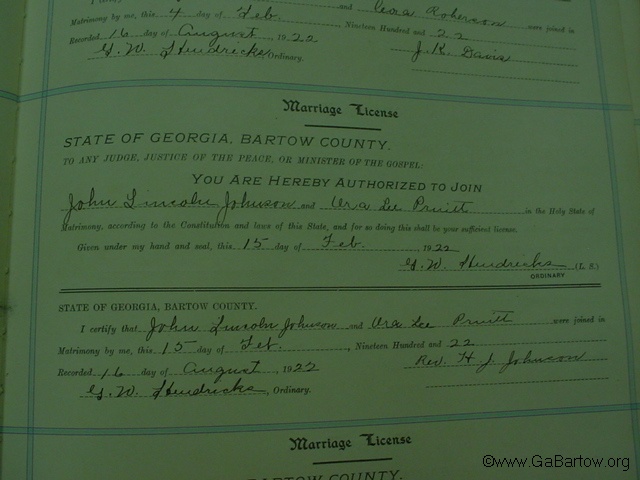 and Cora Roberson were joined in
Matrimony by me, this 4 day of Feb. Nineteen Hundred and 22
Recorded 16 day of August 1922 J. K. Davis
G. W. Hendricks, Ordinary.
Marriage License
STATE OF GEORGIA, BARTOW COUNTY.
TO ANY JUDGE, JUSTICE OF THE PEACE, OR MINISTER OF THE GOSPEL:
YOU ARE HEREBY AUTHORIZED TO JOIN
John Lincoln Johnson and Ura Lee Pruitt in the Holy State of
Matrimony, according to the Constitution and laws of this State, and for so doing this shall be your sufficient license.
Given under my hand and seal, this 15 day of Feb. 1922
G. W. Hendricks (L. S.)
ORDINARY
STATE OF GEORGIA, BARTOW COUNTY.
I certify that John Lincoln Johnson and Ura Lee Pruitt were joined in
Matrimony by me, this 15 day of Feb. , Nineteen Hundred and 22
Recorded 16 day of August 1922 Rev. H. J. Johnson
G. W. Hendricks, Ordinary.
Marriage License
BARTOW COUNTY.
©www.GaBartow.org